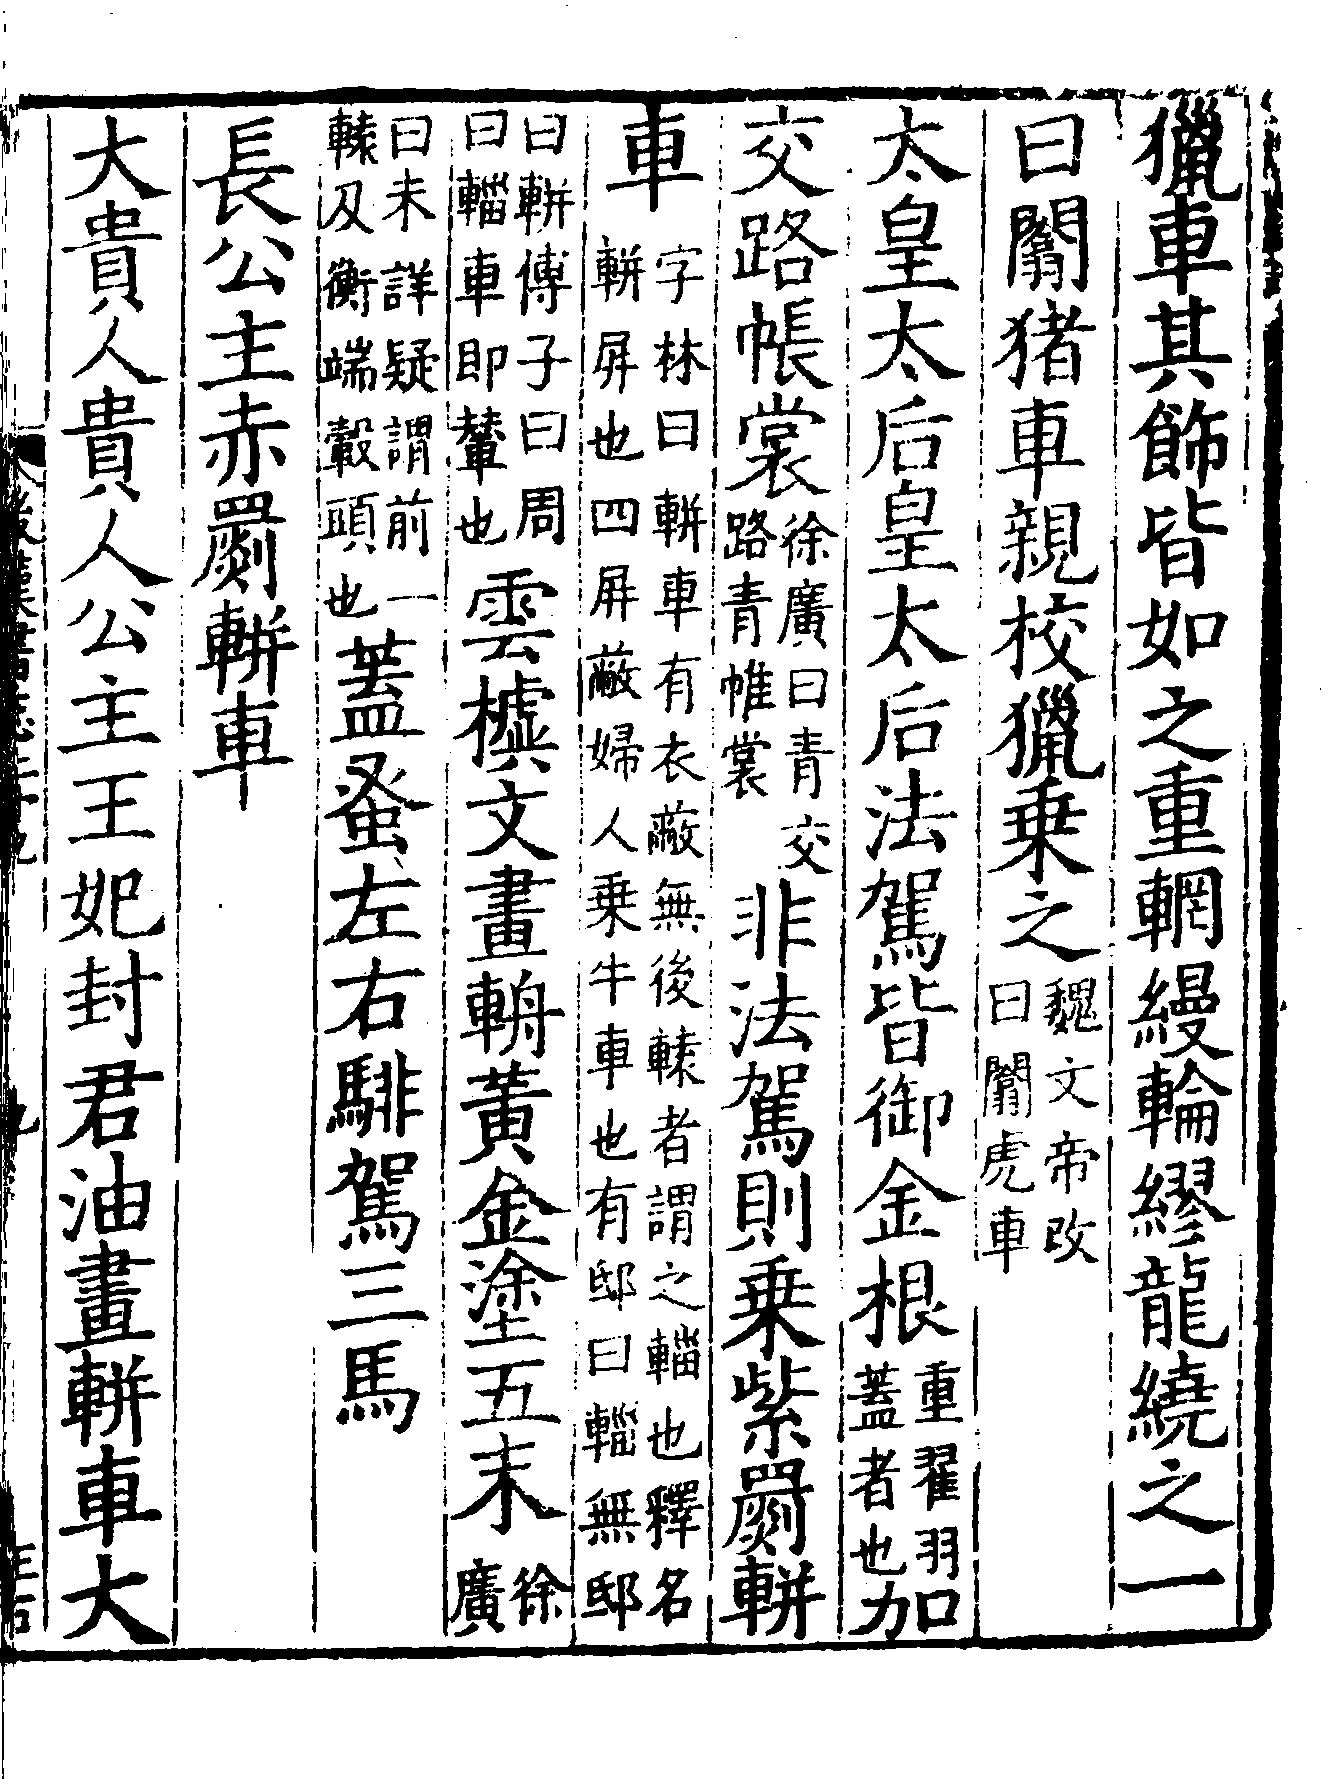 獵車其飾皆如之重輞縵輪繆龍繞之一
曰闟猪車親校獵乘之
魏文帝改
曰闟虎車
太皇太后皇太后法駕皆御金根
重翟羽
蓋者也
加
交路帳裳
徐廣曰青交
路青帷裳
非法駕則乘紫罽軿
車
字林曰軿車有衣蔽無後轅者謂之輜也釋名
軿屏也四屏蔽婦人乘牛車也有邸曰輜無邸
曰軿傅子曰周
曰輜車即輦也
雲㯫文畫輈黃金塗五末
徐
廣
曰未詳疑謂前一
轅及衡端轂頭也
蓋蚤左右騑駕三馬
長公主赤罽軿車
大貴人貴人公主王妃封君油畫軿車大